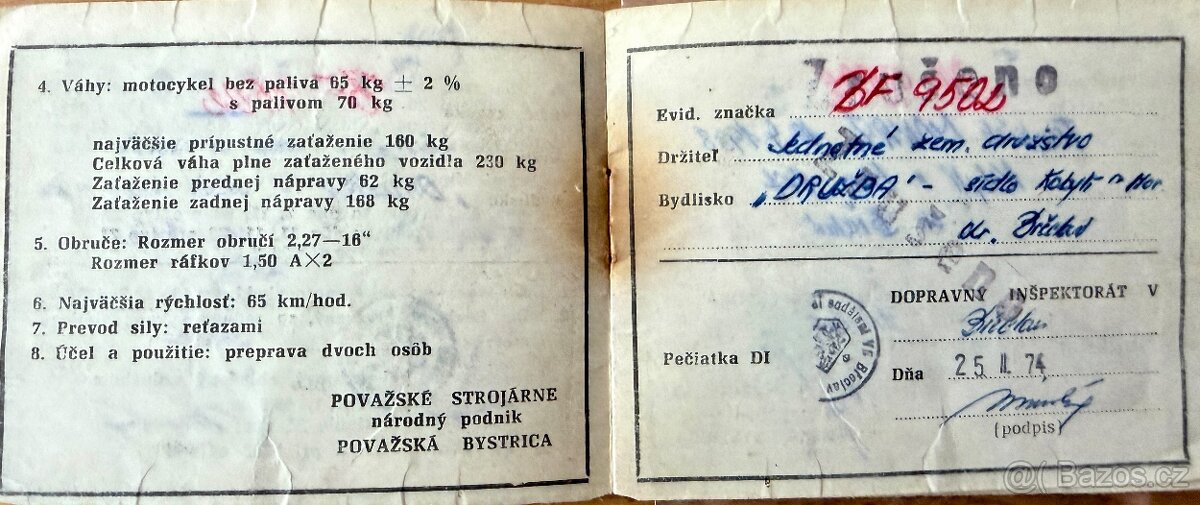 4. Váhy: motocykel bez paliva 65 kg ± 2 %
s palivom 70 kg
najväčšie prípustné zaťaženie 160 kg
Celková váha plne zaťaženého vozidla 230 kg
Zaťaženie prednej nápravy 62 kg
Zaťaženie zadnej nápravy 168 kg
5. Obruče: Rozmer obručí 2,27—16“
Rozmer ráfkov 1,50 A×2
6. Najväčšia rýchlosť: 65 km/hod.
7. Prevod sily: reťazami
8. Účel a použitie: preprava dvoch osôb
POVAŽSKÉ STROJÁRNE
národný podnik
POVAŽSKÁ BYSTRICA
Evid. značka BF 9502
Držiteľ Jednotné zem. družstvo
Bydlisko „DRUŽBA“ - sídlo Kobylí
okr. Břeclav
DOPRAVNÝ INŠPEKTORÁT V
Břeclav
Pečiatka DI
Dňa 25 II. 74
(podpis)
@( Bazos.cz